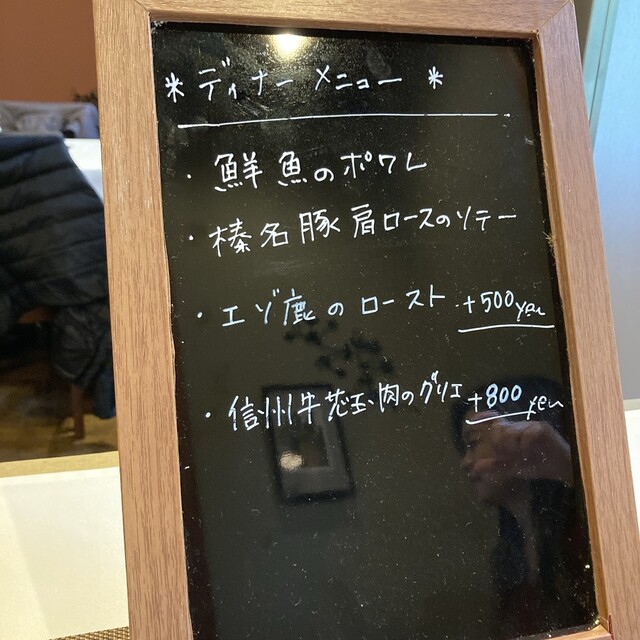 * ディナー メニュー *
・鮮魚のポワレ
・榛名豚肩ロースのソテー
・エゾ鹿のロースト +500yen
・信州牛芯玉肉のグリエ +800yen